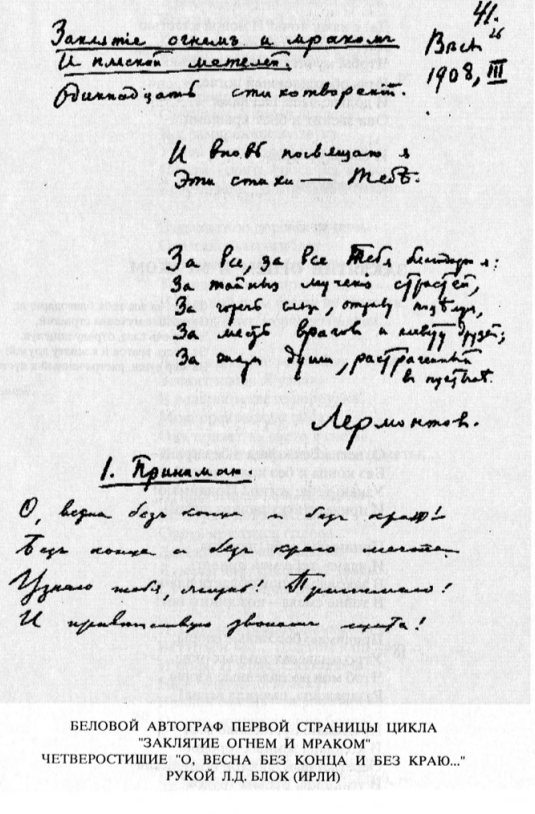 41.
Заклятіе огнемъ и мракомъ
И пляской метелей.
26
1908, III
Одиннадцать стихотвореній.
И вновь посвящаю я
Эти стихи — Тебѣ.
За все, за все Тебя благодарю я:
За тайныя мученья страстей,
За горечь слезъ, отраву поцѣлуя,
За месть враговъ и клевету друзей;
За жаръ души, растраченный
въ пустынѣ.
Лермонтов.
1. Принимаю.
О, весна безъ конца и безъ краю!
Безъ конца и безъ краю мечта
Узнаю тебя, жизнь! Принимаю!
И привѣтствую звономъ щита!
БЕЛОВОЙ АВТОГРАФ ПЕРВОЙ СТРАНИЦЫ ЦИКЛА
"ЗАКЛЯТИЕ ОГНЕМ И МРАКОМ"
ЧЕТВЕРОСТИШИЕ "О, ВЕСНА БЕЗ КОНЦА И БЕЗ КРАЮ..."
РУКОЙ Л.Д. БЛОК (ИРЛИ)